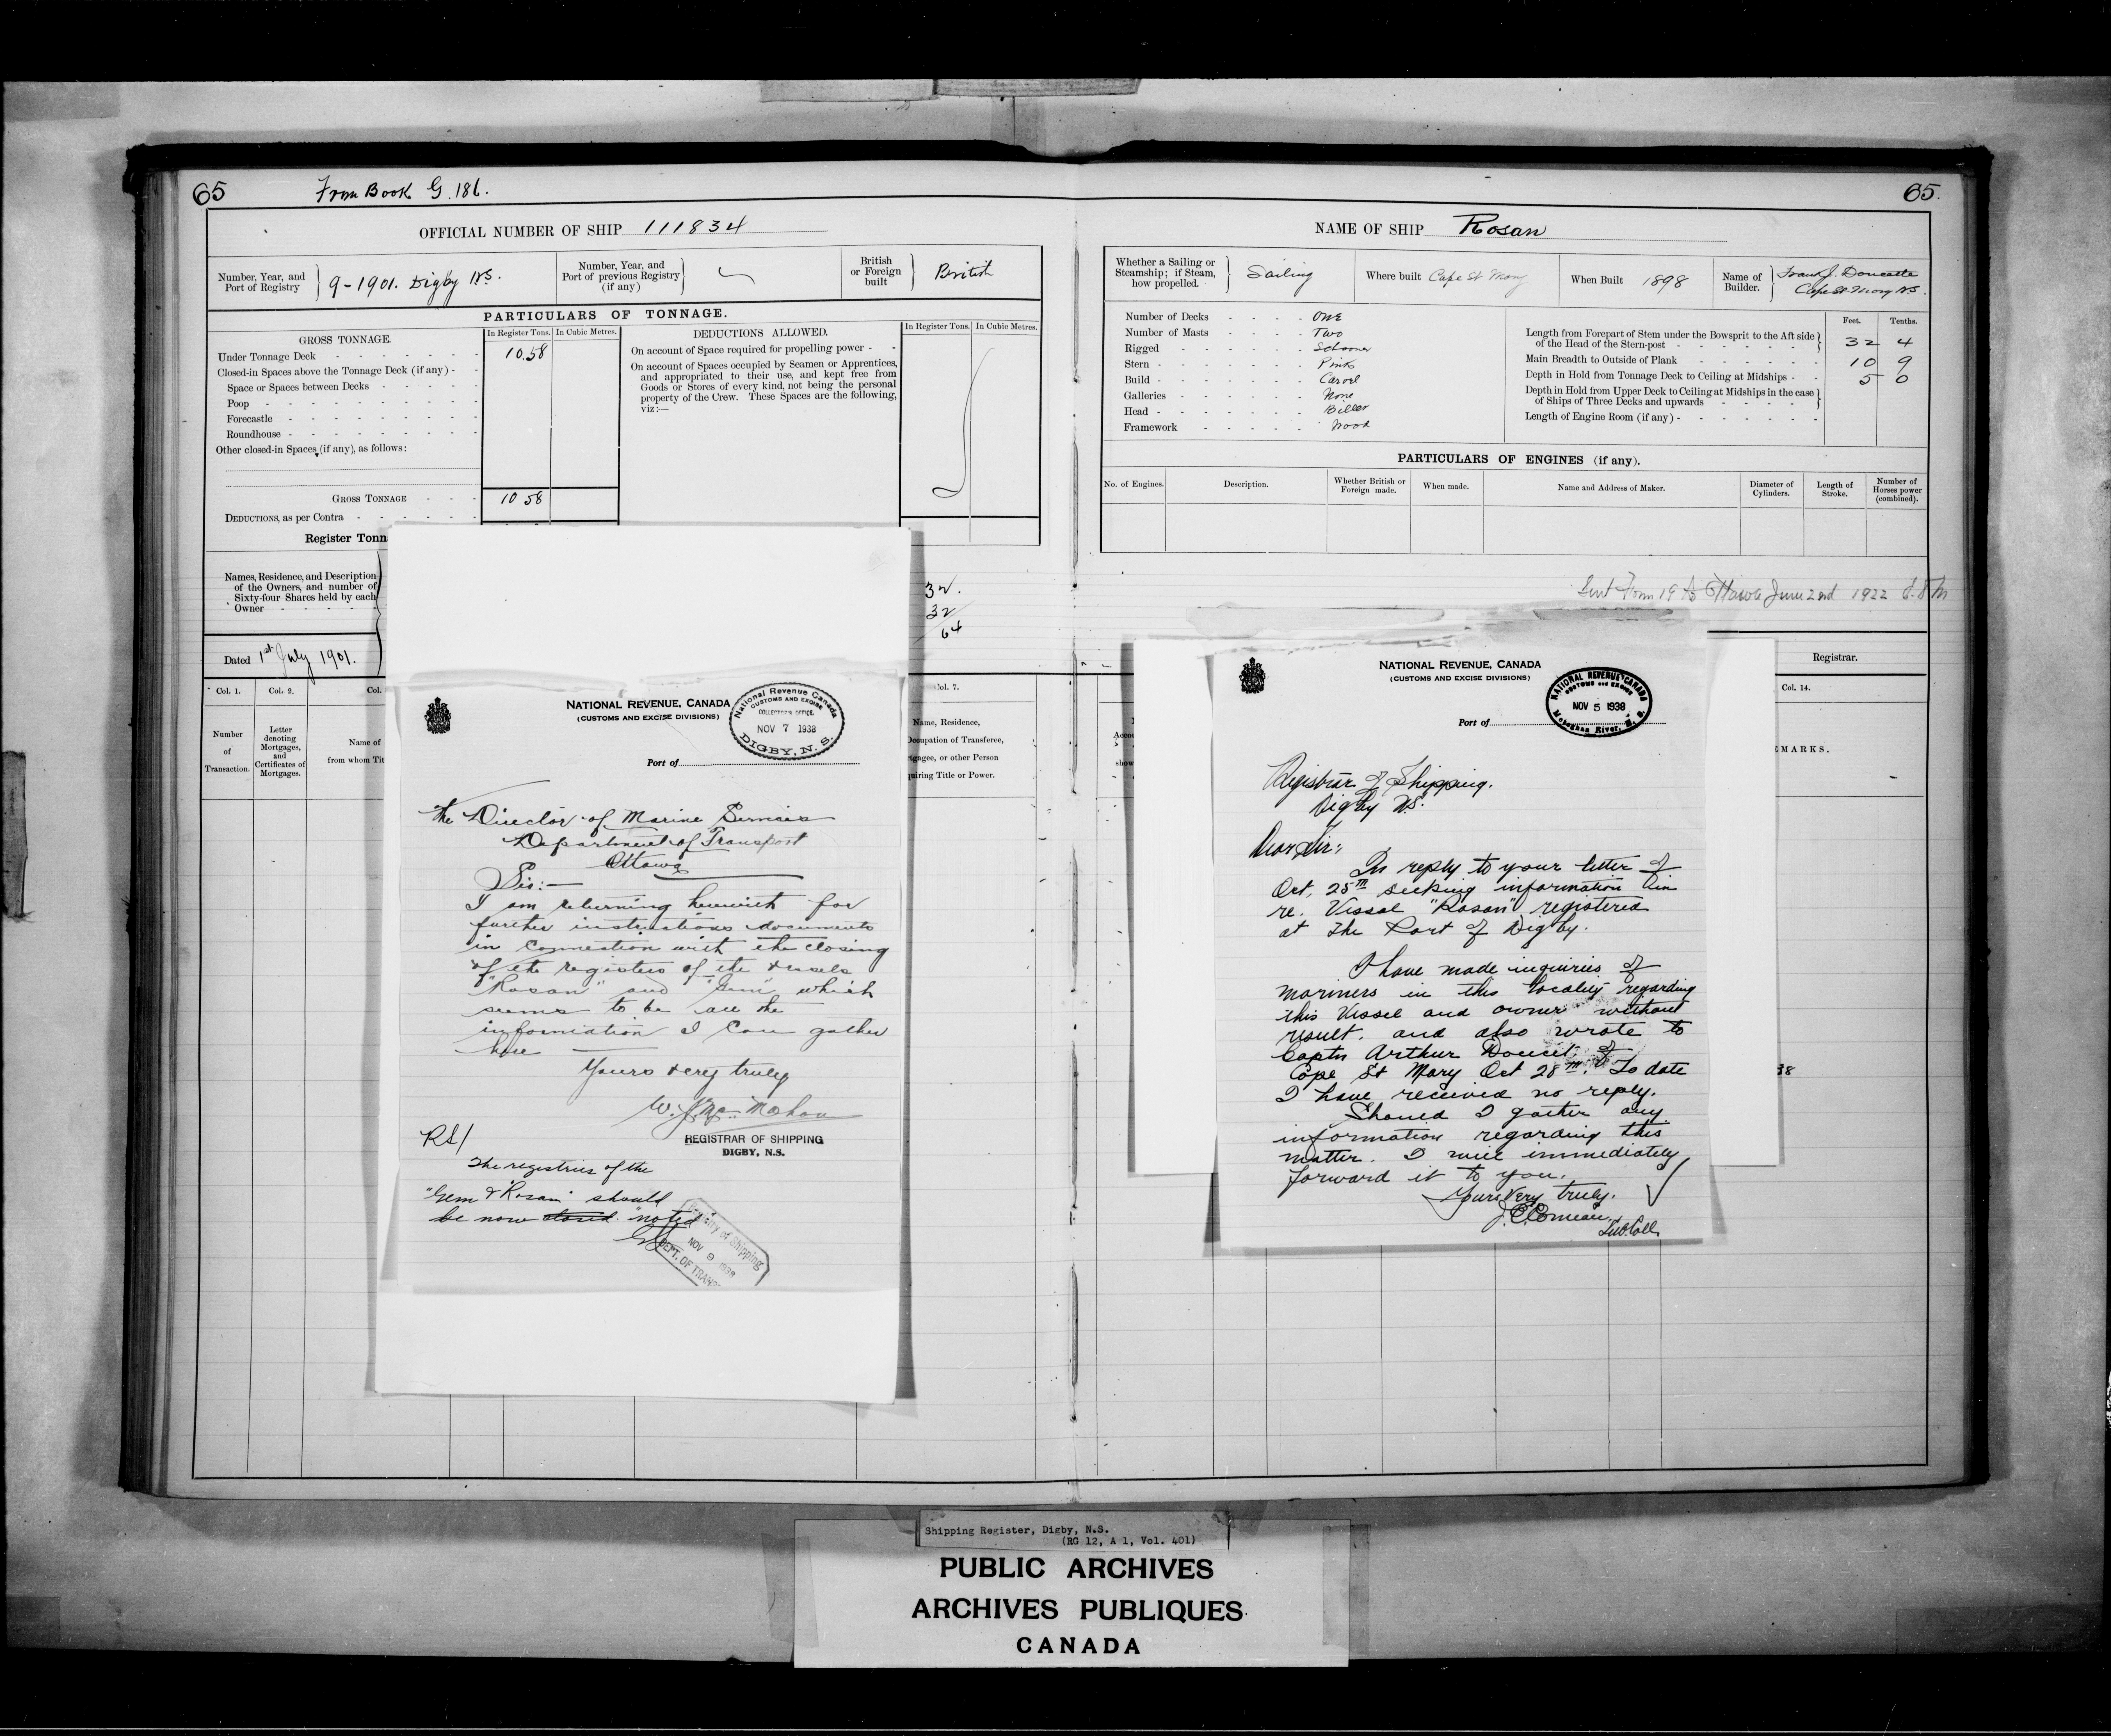 65
From Book G. 186.
OFFICIAL NUMBER OF SHIP 111834
Number, Year, and Port of Registry
9-1901. Digby N.S.
Number, Year, and Port of previous Registry (if any)
British or Foreign built
British
PARTICULARS OF TONNAGE.
GROSS TONNAGE.
In Register Tons.
In Cubic Metres.
Under Tonnage Deck
10.58
Closed-in Spaces above the Tonnage Deck (if any)
Space or Spaces between Decks
Poop
Forecastle
Roundhouse
Other closed-in Spaces (if any), as follows:
GROSS TONNAGE
10 58
DEDUCTIONS, as per Contra
Register Tonn
DEDUCTIONS ALLOWED.
In Register Tons.
In Cubic Metres.
On account of Space required for propelling power
On account of Spaces occupied by Seamen or Apprentices,
and appropriated to their use, and kept free from
Goods or Stores of every kind, not being the personal
property of the Crew. These Spaces are the following,
viz:—
Names, Residence, and Description
of the Owners, and number of
Sixty-four Shares held by each
Owner
32.
32
64
Dated 1st July 1901.
Col. 1.
Col. 2.
Col.
Col. 7.
Number of Transaction.
Letter denoting Mortgages, and Certificates of Mortgages.
Name of
from whom Tit
Name, Residence,
Occupation of Transferee,
rtgagee, or other Person
quiring Title or Power.
NATIONAL REVENUE, CANADA
(CUSTOMS AND EXCISE DIVISIONS)
National Revenue Canada
CUSTOMS AND EXCISE
COLLECTOR'S OFFICE.
NOV 7 1938
DIGBY, N. S.
Port of
The Director of Marine Services
Department of Transport
Ottawa
Sir:—
I am returning herewith for
further instructions documents
in connection with the closing
of the registers of the vessels
"Rosan" and "Gem" which
seems to be all the
information I can gather
here
Yours very truly
W. J. McMahon
REGISTRAR OF SHIPPING
DIGBY, N.S.
RS/
The registries of the
"Gem & "Rosan" should
be now closed. "noted"
Registry of Shipping
NOV 9 1938
DEPT. OF TRANS
65.
NAME OF SHIP Rosan
Whether a Sailing or Steamship; if Steam, how propelled.
Sailing
Where built Cape St Mary
When Built 1898
Name of Builder.
Frank J. Doucette
Cape St Mary N.S.
Number of Decks One
Number of Masts Two
Rigged Schooner
Stern Pink
Build Carvel
Galleries None
Head Billet
Framework Wood
Feet. Tenths.
Length from Forepart of Stem under the Bowsprit to the Aft side
of the Head of the Stern-post 32 4
Main Breadth to Outside of Plank 10 9
Depth in Hold from Tonnage Deck to Ceiling at Midships 5 0
Depth in Hold from Upper Deck to Ceiling at Midships in the case
of Ships of Three Decks and upwards
Length of Engine Room (if any)
PARTICULARS OF ENGINES (if any).
No. of Engines.
Description.
Whether British or Foreign made.
When made.
Name and Address of Maker.
Diameter of Cylinders.
Length of Stroke.
Number of Horses power (combined).
Sent Form 19 to Ottawa June 2nd 1922
Registrar.
Col. 14.
EMARKS.
38
NATIONAL REVENUE, CANADA
(CUSTOMS AND EXCISE DIVISIONS)
NATIONAL REVENUE CANADA
CUSTOMS and EXCISE
NOV 5 1938
Meteghan River, N. S.
Port of
Registrar of Shipping.
Digby N.S.
Dear Sir:
In reply to your letter of
Oct. 25th seeking information
re. Vessel "Rosan" registered
at The Port of Digby.
I have made inquiries of
mariners in this locality regarding
this Vessel and owner without
result. and also wrote to
Captn Arthur Doucet; of
Cape St Mary Oct 28th. To date
I have received no reply.
Should I gather any
information regarding this
matter. I will immediately
forward it to you.
Yours Very truly.
J. E. Comeau,
Sub. Coll.
Shipping Register, Digby, N.S.
(RG 12, A 1, Vol. 401)
PUBLIC ARCHIVES
ARCHIVES PUBLIQUES
CANADA